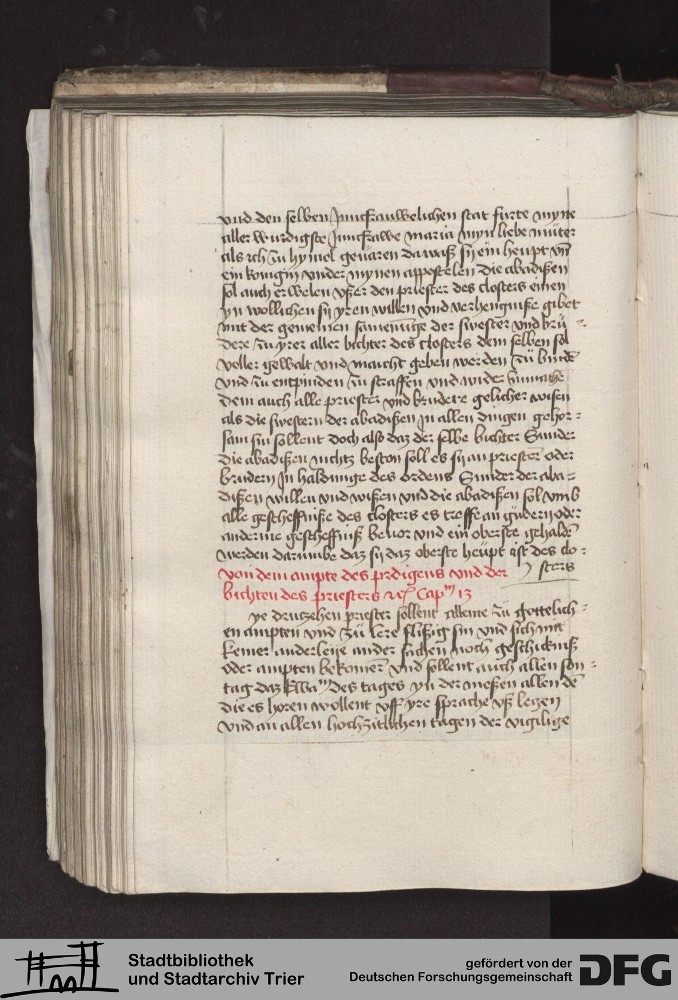 vnd den selben Junckfrauwelichen stat furte myne
aller wurdigste Junckfrawe maria myn liebe muter
als ich zu hymel gevaren da waß sy ein heupt vnd
ein konigin vnder mynen appostelen die abadißen
sol auch erwelen vßer den priester des closters einen
yn wollichen sy yren willen vnd verhengniße gibet
mit der gemeinen samenunge der swester vnd brü-
dere zu yrer aller bichter des closters dem selben sol
voller gewalt vnd maicht geben werden zu bindē
vnd zu entpinden zu straffen vnd wider
dem auch alle priester vnd brudere gelicher wisen
als die swestern der abadißen Jn allen dingen gehor-
sam sin sollent doch also daz der selbe bichter Sunder
die abadißen nichtz beston soll es sy an priester oder
brudern Jn haldunge des ordens Sunder der aba-
dißen willen vnd wißen vnd die abadißen sol vmb
alle gescheffniße des closters es treffe an gudern oder
andernne gescheffniß bevor vnd ein oberste gehaldē
werden darumbe daz sy daz oberste heupt ist des clo-
sters
Von dem ampte des prdigens vnd der
bichten des priesters ꝛc Capm 13
ye drutzehen priester sollent alleine zu gottelich-
en ampten vnd zu lere flißig sin vnd sich mit
keiner anderleye ander sachen noch geschickniß
oder ampten bekomer̄ vnd sollent auch allen son-
tag daz Ewam des tages yn der meßen allen dē
die es horen wollent vff yre sprache vß legen
vnd an allen hochzitlichen tagen der vigilige
Stadtbibliothek
und Stadtarchiv Trier
gefördert von der
Deutschen Forschungsgemeinschaft
DFG